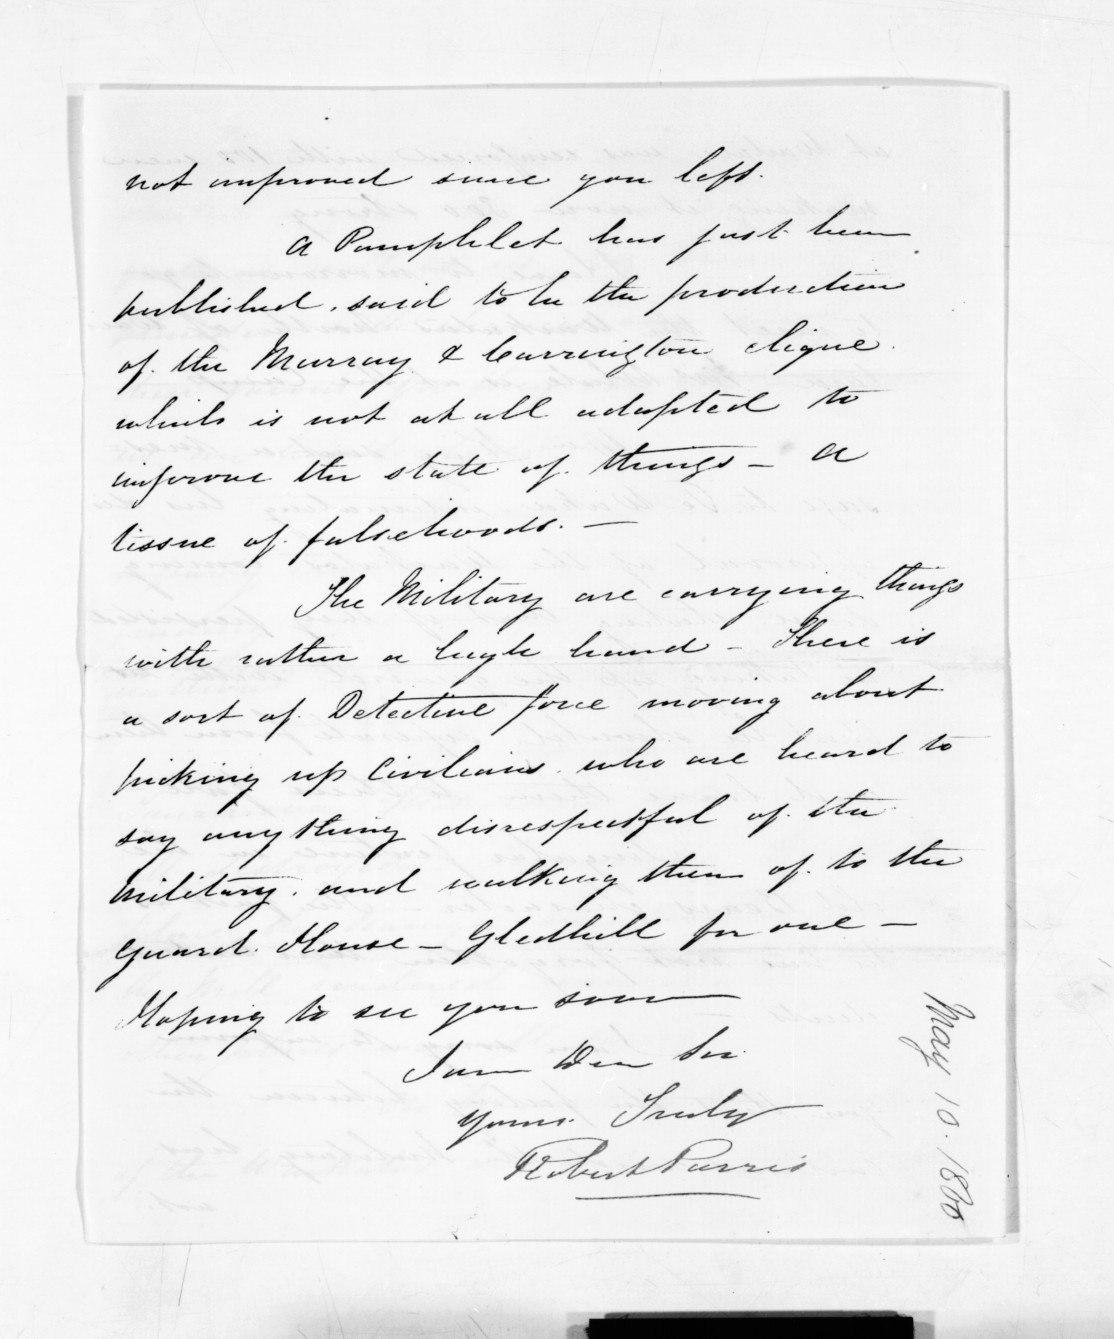 not improved since you left.
A Pamphlet has just been
published, said to be the production
of the Murray & Carrington clique.
which is not at all adapted to
improve the state of things – A
tissue of falsehoods. –
The Military are carrying things
with rather a high hand – There is
a sort of Detective force moving about
picking up Civilians who are heard to
say any thing disrespectful of the
Military, and walking them of to the
Guard House – Gledhill for one –
Hoping to see you soon
I am Dear Sir
Yours Truly
Robert Parris
May 10. 1860